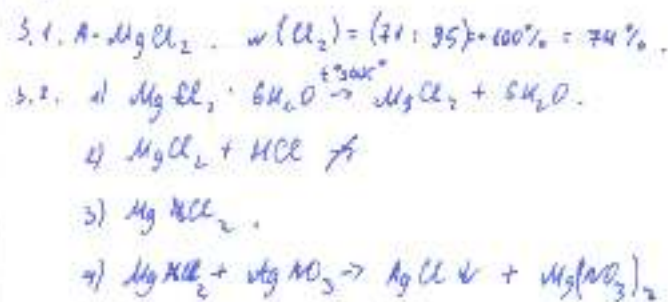 3.1. A - MgCl₂. w(Cl₂) = (71 : 95)·100% = 74%.
3.2. 1) MgCl₂ · 6H₂O → MgCl₂ + 6H₂O.
2) MgCl₂ + HCl ↛
3) MgCl₂.
4) MgCl₂ + AgNO₃ → AgCl↓ + Mg(NO₃)₂